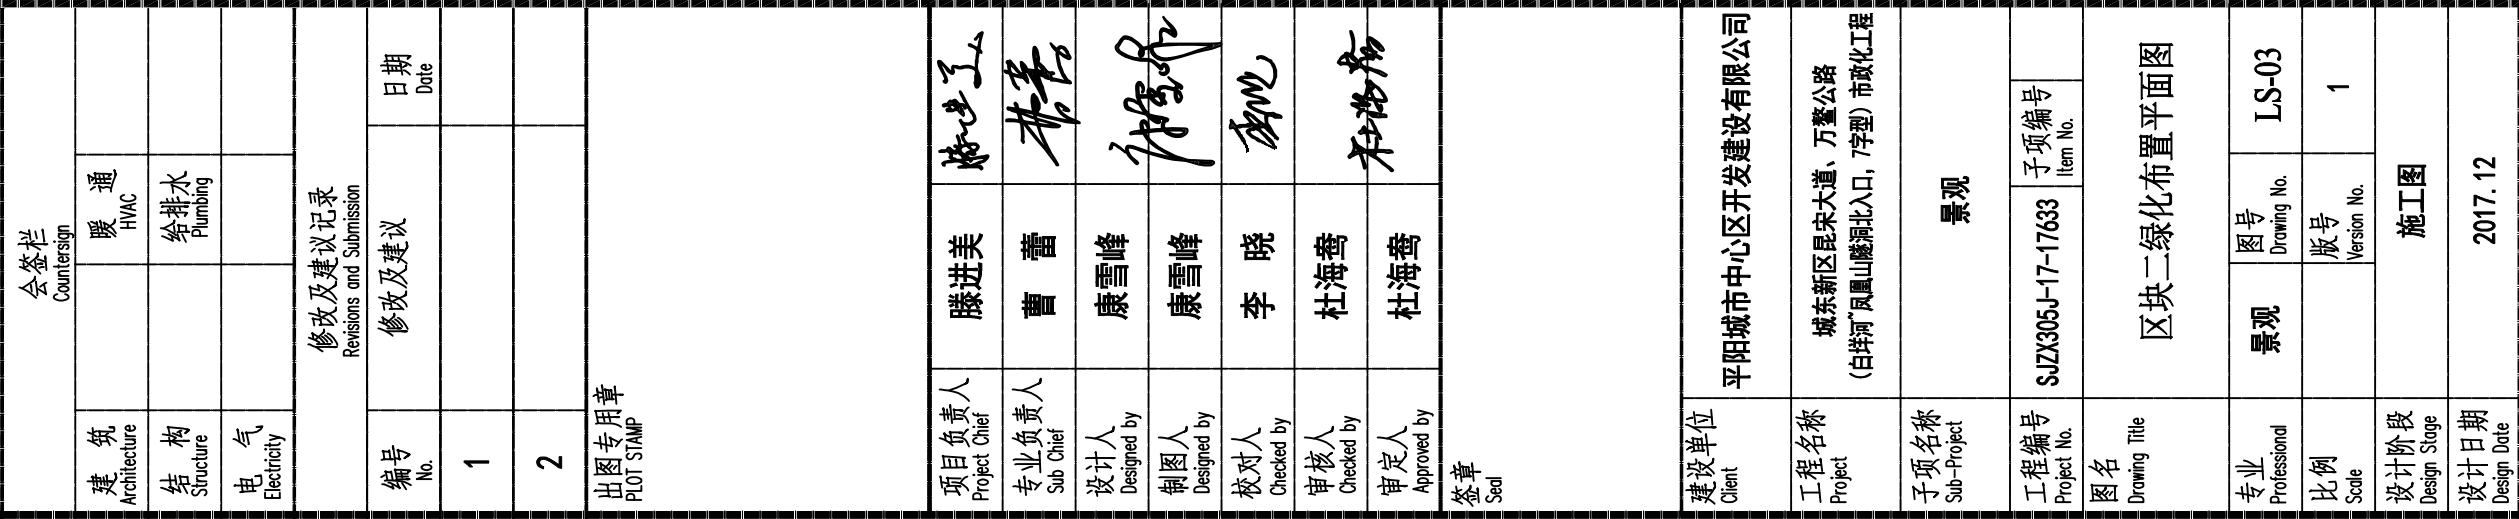 会签栏
Countersign
建 筑
Architecture
暖 通
HVAC
结 构
Structure
给排水
Plumbing
电 气
Electricity
修改及建议记录
Revisions and Submission
编号
No.
修改及建议
日期
Date
1
2
出图专用章
PLOT STAMP
项目负责人
Project Chief
滕进美
专业负责人
Sub Chief
曹 蕾
设计人
Designed by
康雪峰
制图人
Designed by
康雪峰
校对人
Checked by
李 晓
审核人
Checked by
杜海鸯
审定人
Approved by
杜海鸯
签章
Seal
建设单位
Client
平阳城市中心区开发建设有限公司
工程名称
Project
城东新区昆宋大道、万鳌公路
(白垟河~凤凰山隧洞北入口，7字型)市政化工程
子项名称
Sub-Project
景观
工程编号
Project No.
SJZX305J-17-17633
子项编号
Item No.
图名
Drawing Title
区块二绿化布置平面图
专业
Professional
景观
图号
Drawing No.
LS-03
比例
Scale
版号
Version No.
1
设计阶段
Design Stage
施工图
设计日期
Design Date
2017.12